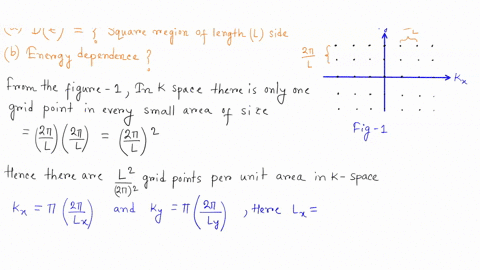 (a) D(ε) = { Square region of length (L) side
(b) Energy dependence ?
2π/L {
Kx
Fig-1
From the figure-1, In K space there is only one
grid point in every small area of size
= (2π/L) (2π/L) = (2π/L)²
Hence there are L²/(2π)² grid points per unit area in k-space
kx = π (2π/Lx) and ky = π (2π/Ly) , Here Lx =